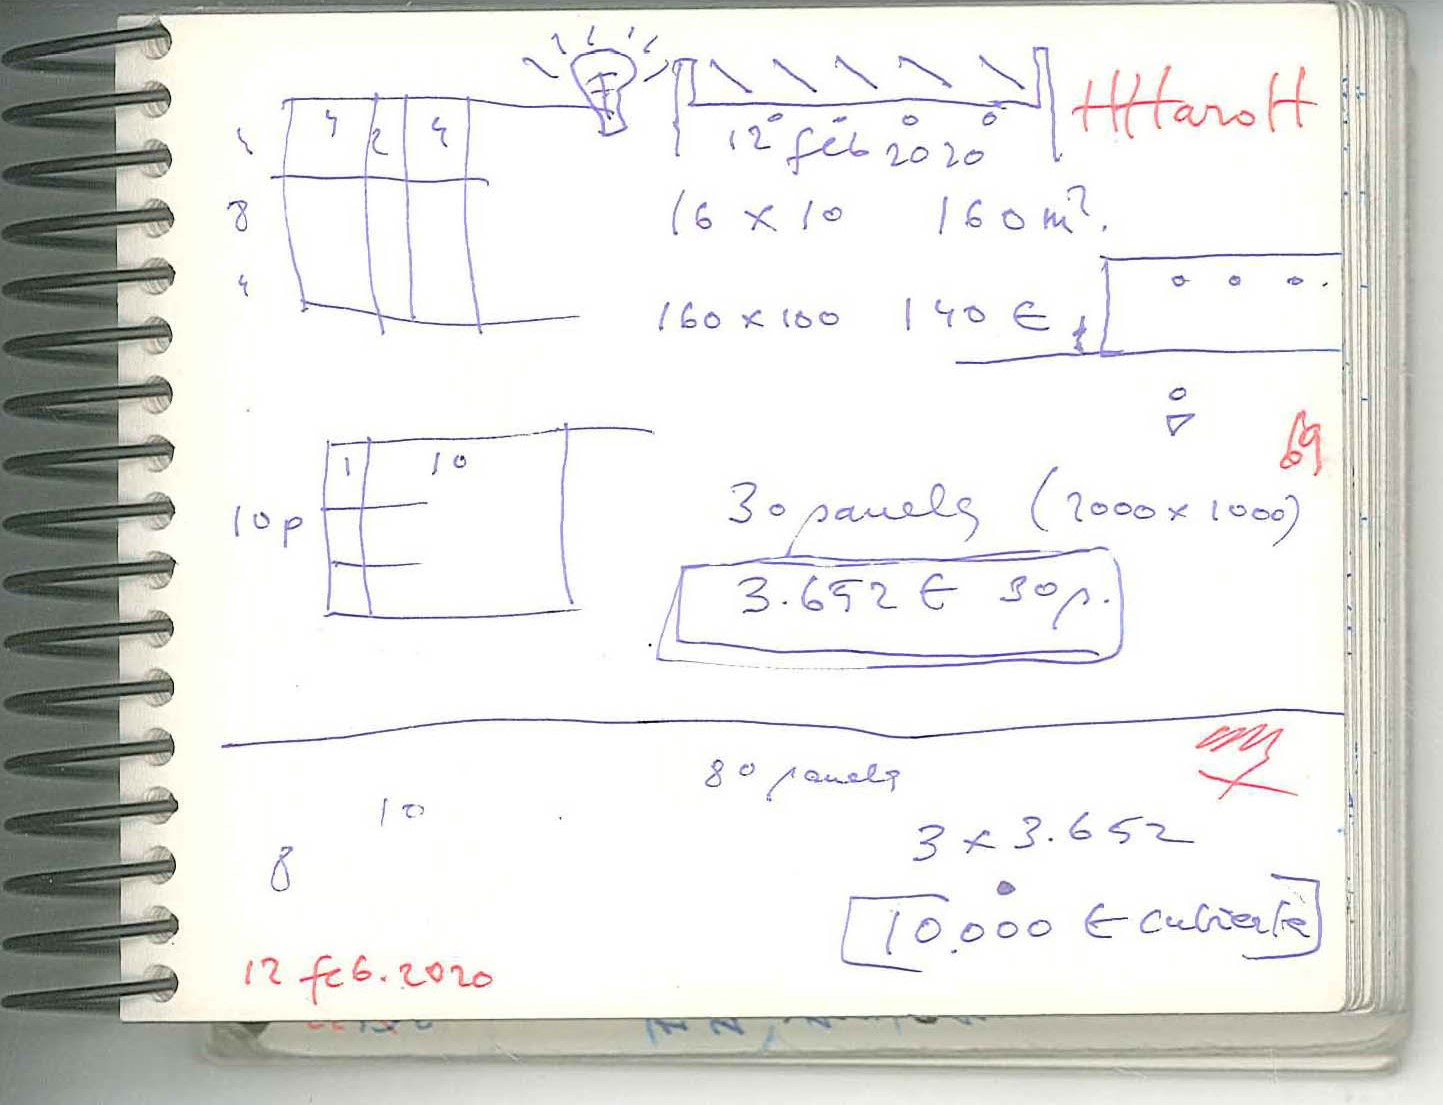 4 2 4
4
8
4
12 feb 2020
HHHaroH
16 x 10 160 m².
160 x 100 140 €
69
1 10
10 p
30 panels (2000 x 1000)
3.652 € 30 p.
80 panels
10
8
3 x 3.652
10.000 € cubierta
12 feb. 2020